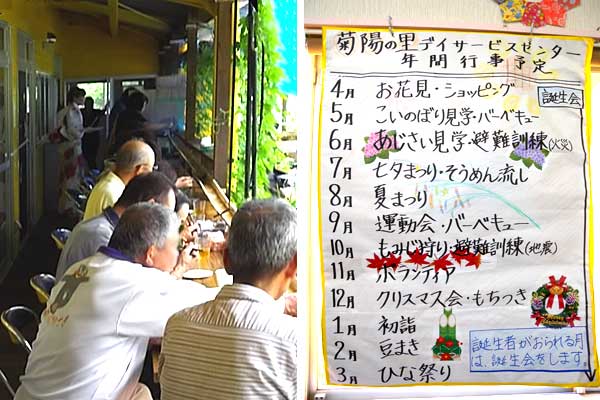 菊陽の里デイサービスセンター
年間行事予定
誕生会
4月 お花見・ショッピング
5月 こいのぼり見学・バーベキュー
6月 あじさい見学・避難訓練(火災)
7月 七夕まつり・そうめん流し
8月 夏まつり
9月 運動会・バーベキュー
10月 もみじ狩り・避難訓練(地震)
11月 ボランティア
12月 クリスマス会・もちつき
1月 初詣
2月 豆まき
3月 ひな祭り
誕生者がおられる月
は、誕生会をします。